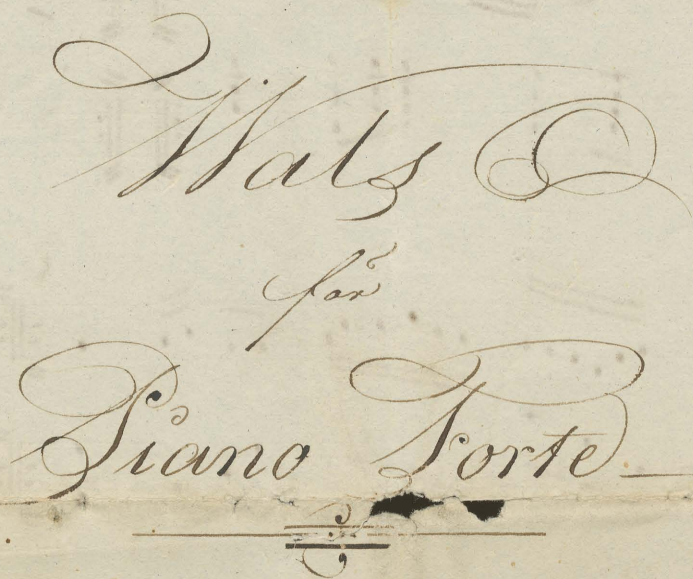 Wals
för
Piano Forte